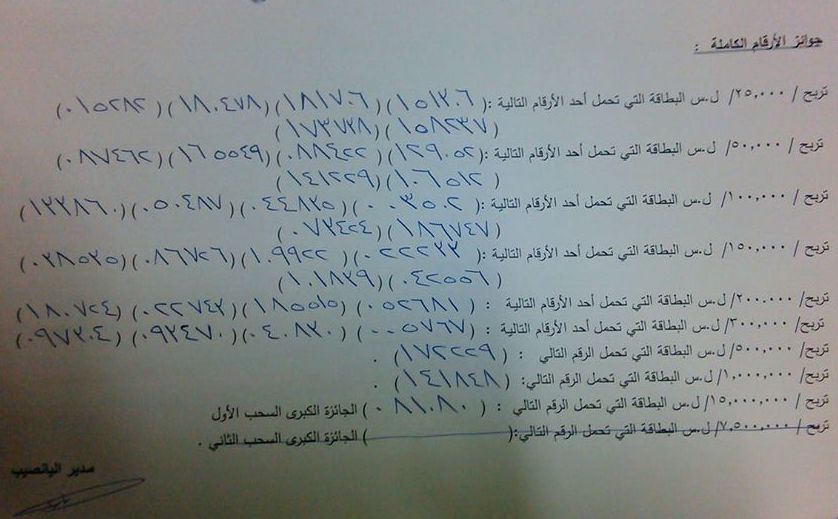 جوائز الأرقام الكاملة :
تربح / ٢٥,٠٠٠/ ل.س البطاقة التي تحمل أحد الأرقام التالية :( ١٥١٣٠٦ )( ١٨١٧٠٦ )( ١٨٠٤٧٨ )( ٠١٥٢٨٢ )
( ١٥٨٢٣٧ )( ١٧٣٧٢٨ )
تربح / ٥٠,٠٠٠/ ل.س البطاقة التي تحمل أحد الأرقام التالية :( ١٢٩٠٥٢ )( ٠٨٨٤٢٢ )( ١٦٥٥٤٩ )( ٠٨٧٤٦٢ )
( ١٠٦٥١٢ )( ١٤١٢٢٩ )
تربح / ١٠٠,٠٠٠/ ل.س البطاقة التي تحمل أحد الأرقام التالية :( ٠٠٣٥٠٢ )( ٠٤٤٨٢٥ )( ٠٥٠٤٨٧ )( ١٢٢٨٦٠ )
( ١٨٦٧٤٧ )( ٠٧٣٤٢٤ )
تربح / ١٥٠,٠٠٠/ ل.س البطاقة التي تحمل أحد الأرقام التالية :( ٠٢٢٢٣٣ )( ١٠٩٩٢٢ )( ٠٨٦٧٢٦ )( ٠٢٨٥٢٥ )
( ٠٤٢٥٥٦ )( ١٠١٨٣٩ )
تربح / ٢٠٠,٠٠٠/ ل.س البطاقة التي تحمل أحد الأرقام التالية : ( ٠٥٢٦٨١ )( ١٨٥٥١٥ )( ٠٢٢٧٤٢ )( ١٨٠٧٢٤ )
تربح / ٣٠٠,٠٠٠/ ل.س البطاقة التي تحمل أحد الأرقام التالية : ( ٠٠٥٧٦٧ )( ٠٤٠٨٢٠ )( ٠٩٢٤٧٠ )( ٠٩٧٢٠٤ )
تربح / ٥٠٠,٠٠٠/ ل.س البطاقة التي تحمل الرقم التالي : ( ١٧٢٢٢٩ ) .
تربح / ١,٠٠٠,٠٠٠/ ل.س البطاقة التي تحمل الرقم التالي: ( ١٤١٨٤٨ ) .
تربح / ١٥,٠٠٠,٠٠٠/ ل.س البطاقة التي تحمل الرقم التالي : ( ٠٨١٠٨٠ ) الجائزة الكبرى السحب الأول
تربح / ٧,٥٠٠,٠٠٠/ ل.س البطاقة التي تحمل الرقم التالي:( ) الجائزة الكبرى السحب الثاني .
مدير اليانصيب